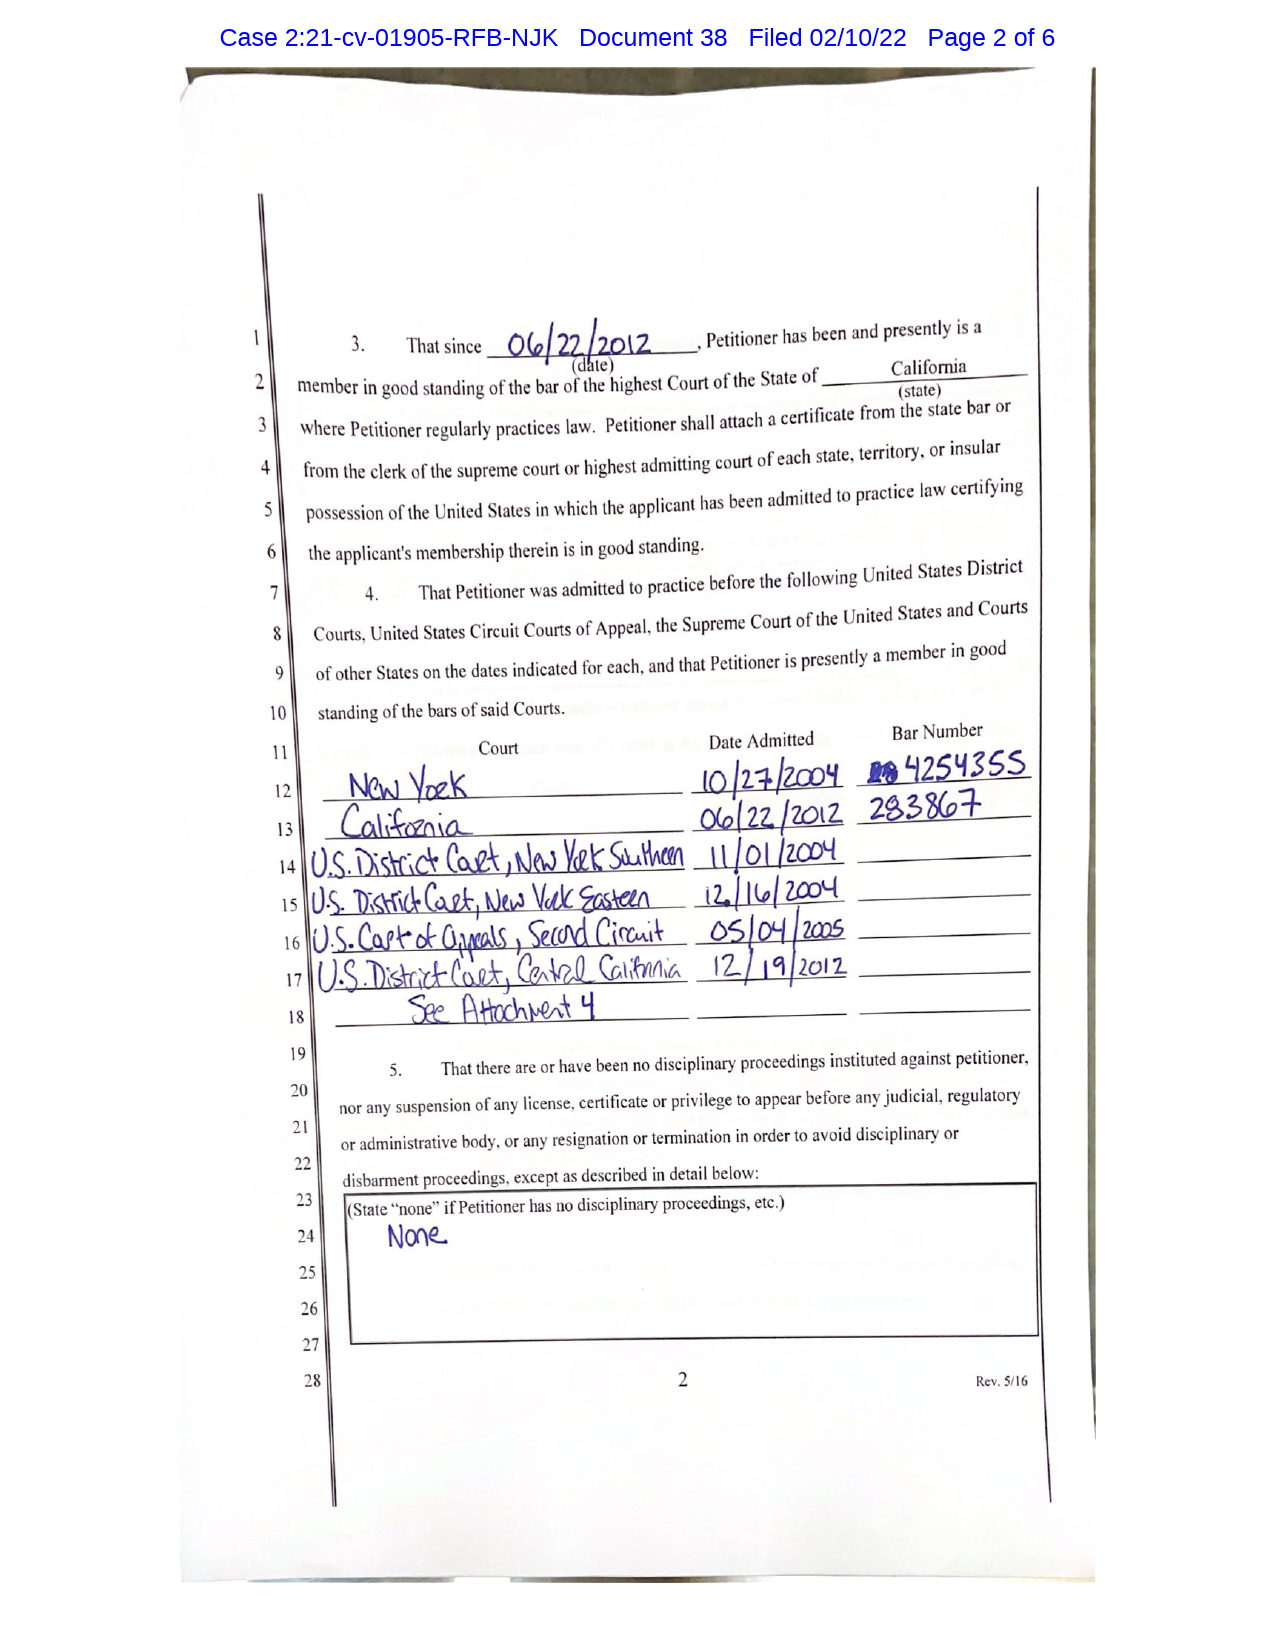 Case 2:21-cv-01905-RFB-NJK Document 38 Filed 02/10/22 Page 2 of 6
1 3. That since 06/22/2012, Petitioner has been and presently is a
(date)
2 member in good standing of the bar of the highest Court of the State of California
(state)
3 where Petitioner regularly practices law. Petitioner shall attach a certificate from the state bar or
4 from the clerk of the supreme court or highest admitting court of each state, territory, or insular
5 possession of the United States in which the applicant has been admitted to practice law certifying
6 the applicant's membership therein is in good standing.
7 4. That Petitioner was admitted to practice before the following United States District
8 Courts, United States Circuit Courts of Appeal, the Supreme Court of the United States and Courts
9 of other States on the dates indicated for each, and that Petitioner is presently a member in good
10 standing of the bars of said Courts.
11 Court Date Admitted Bar Number
12 New York 10/27/2004 4254355
13 California 06/22/2012 283867
14 U.S. District Court, New York Southern 11/01/2004
15 U.S. District Court, New York Eastern 12/16/2004
16 U.S. Court of Appeals, Second Circuit 05/04/2005
17 U.S. District Court, Central California 12/19/2012
18 See Attachment 4
19 5. That there are or have been no disciplinary proceedings instituted against petitioner,
20 nor any suspension of any license, certificate or privilege to appear before any judicial, regulatory
21 or administrative body, or any resignation or termination in order to avoid disciplinary or
22 disbarment proceedings, except as described in detail below:
23 (State “none” if Petitioner has no disciplinary proceedings, etc.)
24 None
25
26
27
28 2 Rev. 5/16